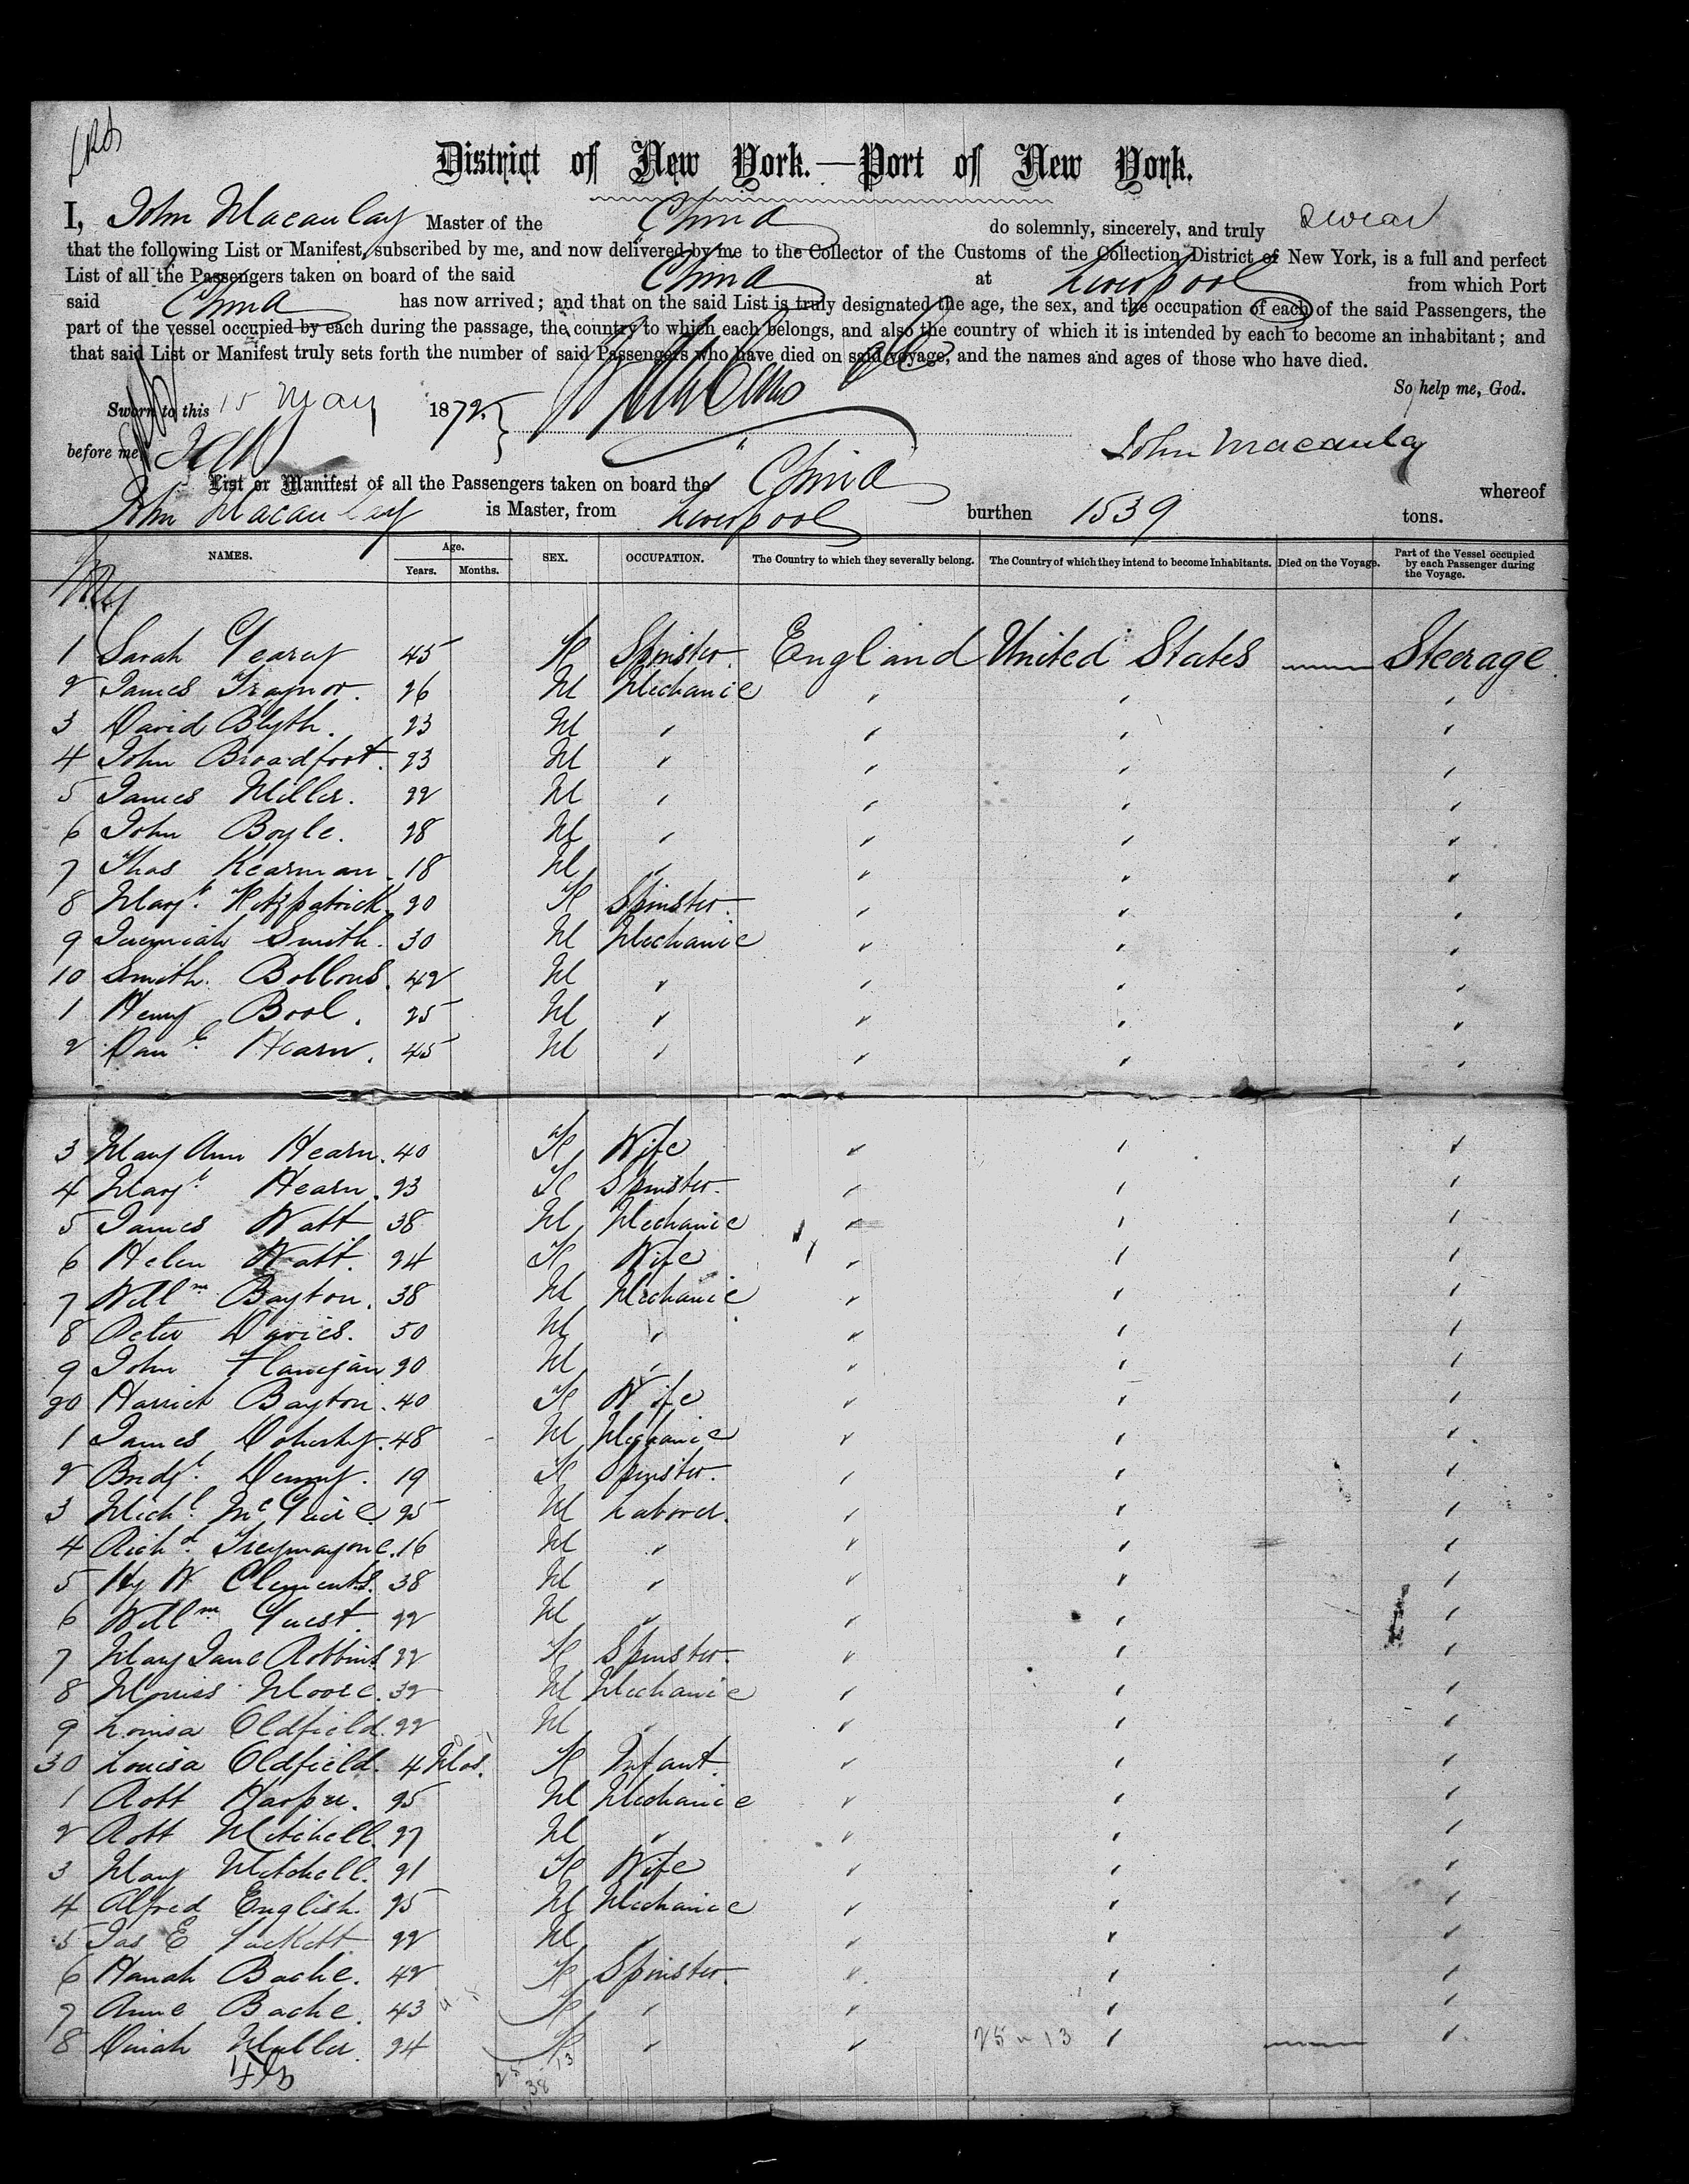 District of New York.—Port of New York.
I, John Macaulay Master of the China do solemnly, sincerely, and truly swear
that the following List or Manifest, subscribed by me, and now delivered by me to the Collector of the Customs of the Collection District of New York, is a full and perfect
List of all the Passengers taken on board of the said China at Liverpool from which Port
said China has now arrived; and that on the said List is truly designated the age, the sex, and the occupation of each of the said Passengers, the
part of the vessel occupied by each during the passage, the country to which each belongs, and also the country of which it is intended by each to become an inhabitant; and
that said List or Manifest truly sets forth the number of said Passengers who have died on said voyage, and the names and ages of those who have died.
So help me, God.
Sworn to this 15 May 1872
before me
John Macaulay
List or Manifest of all the Passengers taken on board the "China whereof
John Macaulay is Master, from Liverpool burthen 1539 tons.
NAMES. Age. Years. Months. SEX. OCCUPATION. The Country to which they severally belong. The Country of which they intend to become Inhabitants. Died on the Voyage. Part of the Vessel occupied by each Passenger during the Voyage.
1 Sarah Geary 45 F Spinster. England United States Steerage.
2 James Traynor. 26 M Mechanic " " "
3 David Blyth. 23 M " " " "
4 John Broadfoot. 23 M " " " "
5 James Miller. 22 M " " " "
6 John Boyle. 28 M " " " "
7 Thos Kearnan. 18 M " " " "
8 Margt. Fitzpatrick 20 F Spinster. " " "
9 Jeremiah Smith. 30 M Mechanic " " "
10 Smith. Bollons. 42 M " " " "
1 Henry Bool. 25 M " " " "
2 Danl. Hearn. 45 M " " " "
3 Mary Ann Hearn. 40 F Wife " " "
4 Margt. Hearn. 23 F Spinster. " " "
5 James Watt 38 M Mechanic " " "
6 Helen Watt. 24 F Wife " " "
7 Willm Bayton. 38 M Mechanic " " "
8 Peter Davies. 50 M " " " "
9 John Flanigan 20 M " " " "
20 Harriet Bayton. 40 F Wife " " "
1 James Doherty. 48 M Mechanic " " "
2 Bridgt. Denny. 19 F Spinster. " " "
3 Michl. McGuire 25 M Laborer. " " "
4 Richd. 16 M " " " "
5 Hy W Clements. 38 M " " " "
6 Willm Guest. 22 M " " " "
7 Mary Jane Robbins 22 F Spinster. " " "
8 Morriss Moore. 32 M Mechanic " " "
9 Louisa Oldfield. 22 M " " " "
30 Louisa Oldfield. 4 Mos. F Infant. " " "
1 Robt Harper. 25 M Mechanic " " "
2 Robt Mitchell. 27 M " " " "
3 Mary Mitchell. 21 F Wife " " "
4 Alfred English. 25 M Mechanic " " "
5 Jas E Luckett 22 M " " " "
6 Hanah Bache. 42 F Spinster. " " "
7 Anne Bache. 43 F " " " "
8 Dinah Muller. 24 F " " " "
25 " 13
25 13
38